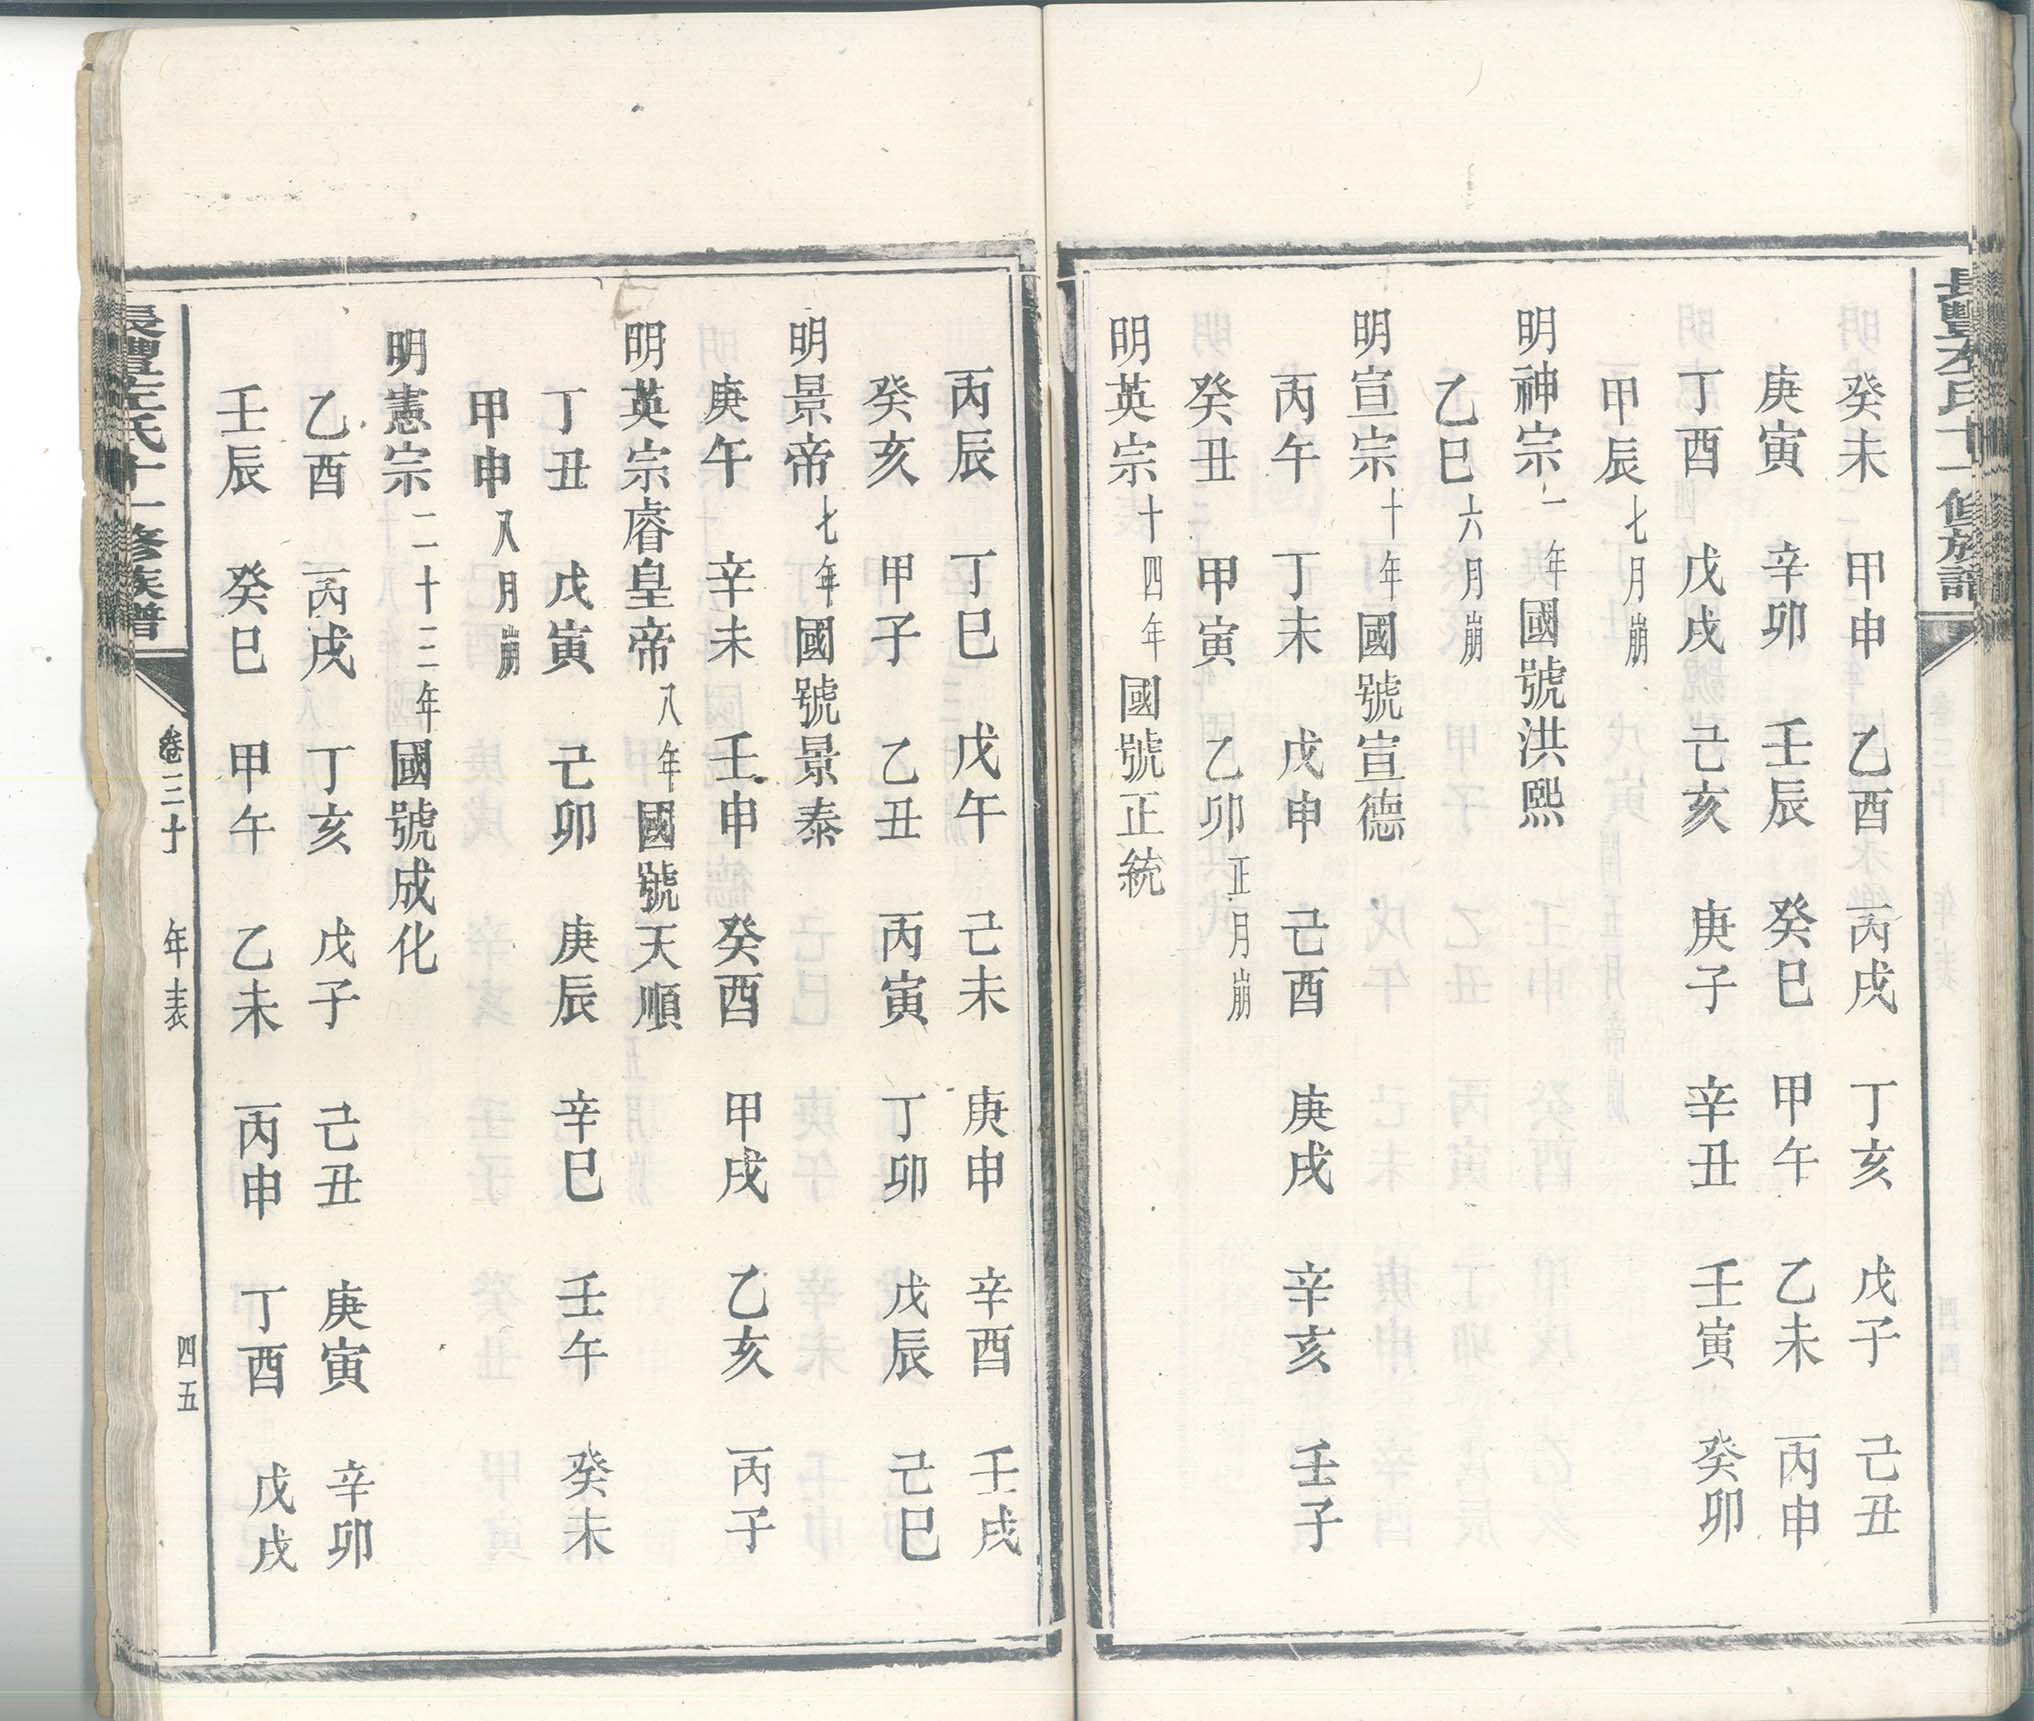 長豐左氏十一修族譜
癸未 甲申 乙酉 丙戌 丁亥 戊子 己丑
庚寅 辛卯 壬辰 癸巳 甲午 乙未 丙申
丁酉 戊戌 己亥 庚子 辛丑 壬寅 癸卯
甲辰七月崩
明神宗一年國號洪熙
乙巳六月崩
明宣宗十年國號宣德
丙午 丁未 戊申 己酉 庚戌 辛亥 壬子
癸丑 甲寅 乙卯正月崩
明英宗十四年國號正統
丙辰 丁巳 戊午 己未 庚申 辛酉 壬戌
癸亥 甲子 乙丑 丙寅 丁卯 戊辰 己巳
明景帝七年國號景泰
庚午 辛未 壬申 癸酉 甲戌 乙亥 丙子
明英宗睿皇帝八年國號天順
丁丑 戊寅 己卯 庚辰 辛巳 壬午 癸未
甲申八月崩
明憲宗二十三年國號成化
乙酉 丙戌 丁亥 戊子 己丑 庚寅 辛卯
壬辰 癸巳 甲午 乙未 丙申 丁酉 戊戌
長豐左氏十一修族譜 卷三十 年表 四五